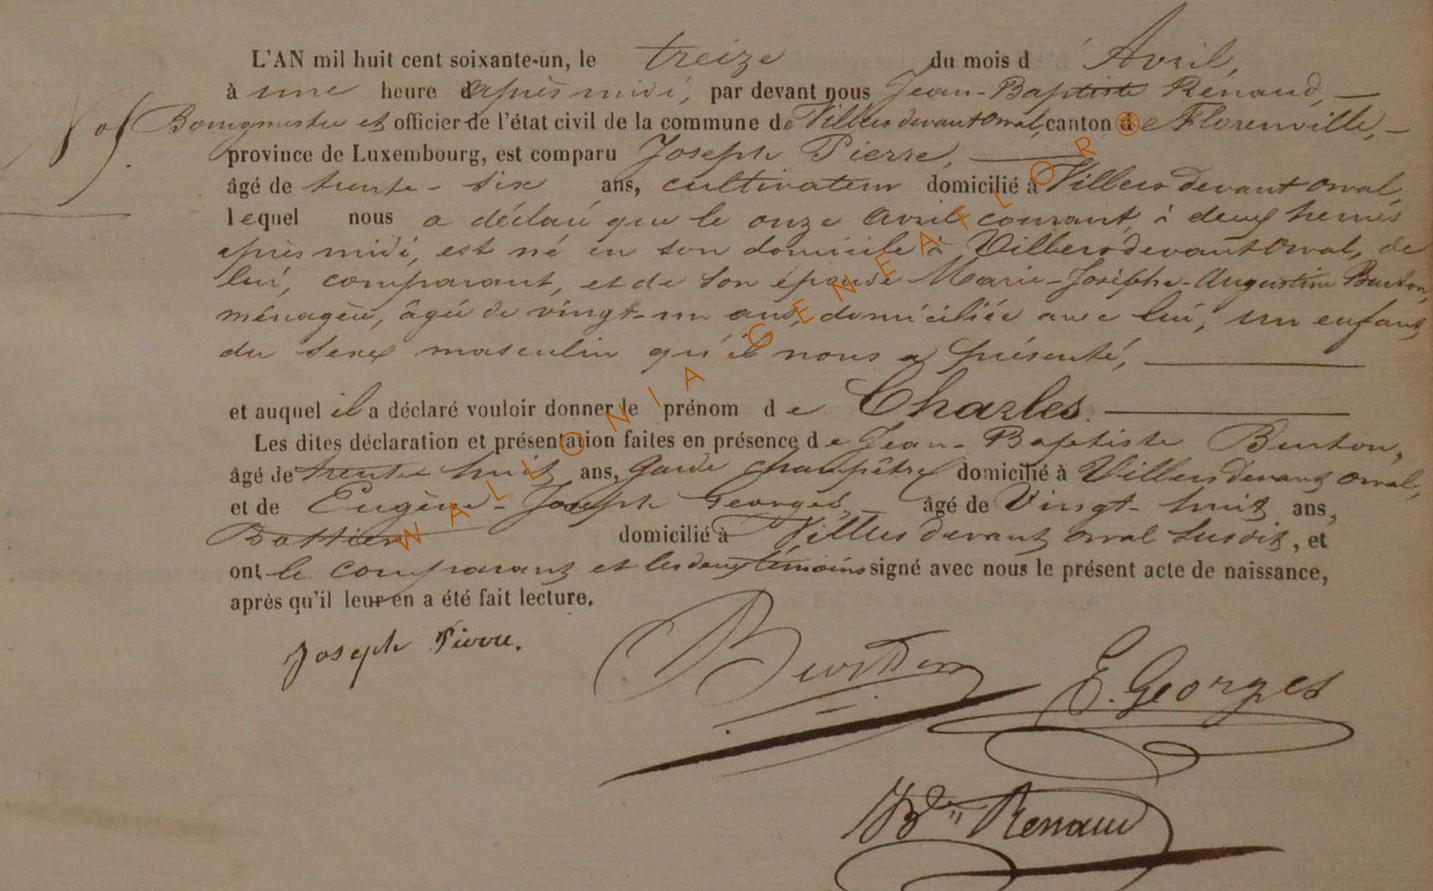 L'AN mil huit cent soixante-un, le treize du mois d' Avril,
à une heure après midi, par devant nous Jean-Baptiste Renaud,
Bourgmestre et officier de l'état civil de la commune de Villers devant Orval, canton de Florenville,
province de Luxembourg, est comparu Joseph Pierre,
âgé de trente-six ans, cultivateur domicilié à Villers devant Orval,
lequel nous a déclaré que le onze Avril courant, à deux heures
après midi, est né en son domicile à Villers devant Orval, de
lui, comparant, et de son épouse Marie-Josèphe-Augustine Burton,
ménagère, âgée de vingt-un ans, domiciliée avec lui, un enfant
du sexe masculin qu'il nous a présenté,
et auquel il a déclaré vouloir donner le prénom de Charles.
Les dites déclaration et présentation faites en présence de Jean-Baptiste Burton,
âgé de trente huit ans, garde champêtre domicilié à Villers devant Orval,
et de Eugène-Joseph Georges, âgé de Vingt-huit ans,
domicilié à Villers devant Orval susdit, et
ont le comparant et les deux témoins signé avec nous le présent acte de naissance,
après qu'il leur en a été fait lecture.
Joseph Pierre.
Burton
E. Georges
Renaud
WALLONIA GENEAFLOR